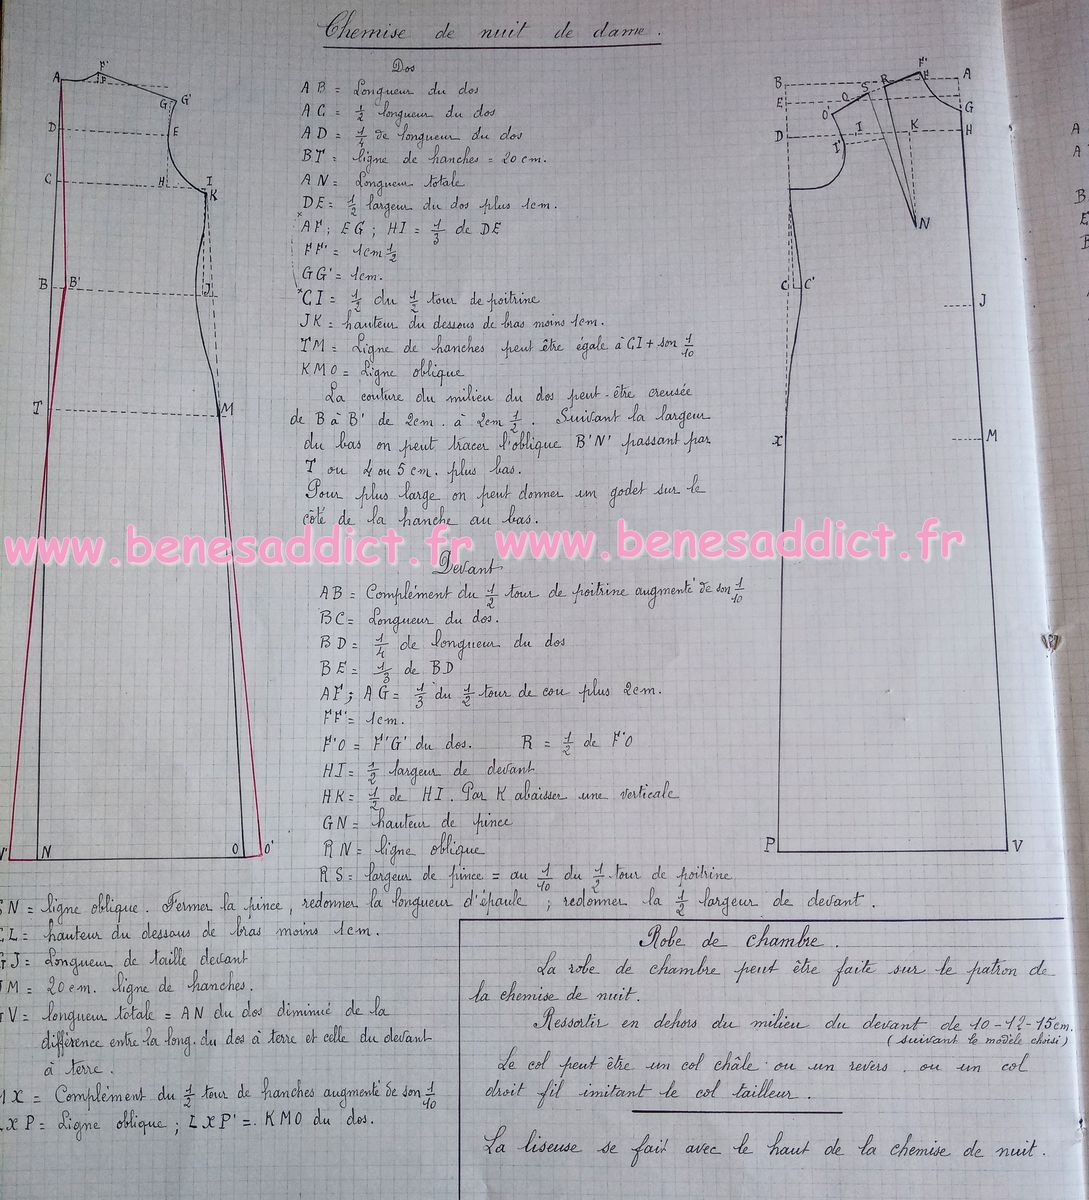 Chemise de nuit de dame.
Dos
AB = Longueur du dos
AC = 1/2 longueur du dos
AD = 1/4 de longueur du dos
BT = ligne de hanches = 20 cm.
AN = Longueur totale
DE = 1/2 largeur du dos plus 1cm.
AF ; EG ; HI = 1/3 de DE
FF' = 1cm 1/2
GG' = 1cm.
CI = 1/2 du 1/2 tour de poitrine
JK = hauteur du dessous de bras moins 1cm.
TM = Ligne de hanches peut être égale à CI + son 1/10
KMO = Ligne oblique
La couture du milieu du dos peut-être creusée
de B à B' de 2cm. à 2cm 1/2. Suivant la largeur
du bas on peut tracer l'oblique B'N' passant par
T ou 4 ou 5 cm. plus bas.
Pour plus large on peut donner un godet sur le
côté de la hanche au bas.
www.benesaddict.fr www.benesaddict.fr
Devant
AB = Complément du 1/2 tour de poitrine augmenté de son 1/10
BC = Longueur du dos.
BD = 1/4 de longueur du dos
BE = 1/3 de BD
AF ; AG = 1/3 du 1/2 tour de cou plus 2cm.
FF' = 1cm.
F'O = F'G' du dos. R = 1/2 de F'O
HI = 1/2 largeur de devant
HK = 1/2 de HI. Par K abaisser une verticale
GN = hauteur de pince
RN = ligne oblique
RS = largeur de pince = au 1/10 du 1/2 tour de poitrine
SN = ligne oblique. Fermer la pince, redonner la longueur d'épaule ; redonner la 1/2 largeur de devant.
CL = hauteur du dessous de bras moins 1cm.
GJ = Longueur de taille devant
JM = 20cm. ligne de hanches.
GV = longueur totale = AN du dos diminué de la
différence entre la long. du dos à terre et celle du devant
à terre.
MX = Complément du 1/2 tour de hanches augmenté de son 1/10
LXP = Ligne oblique ; LXP' = KMO du dos.
Robe de chambre.
La robe de chambre peut être faite sur le patron de
la chemise de nuit.
Ressortir en dehors du milieu du devant de 10-12-15cm.
(suivant le modèle choisi)
Le col peut être un col châle ou un revers, ou un col
droit fil imitant le col tailleur.
La liseuse se fait avec le haut de la chemise de nuit.
A
F'
F
G
G'
D
E
C
H
I
K
B
B'
J
T
M
N'
N
O
O'
B
S
R
F'
F
A
E
Q
O'
G
D
I
I'
K
H
N
C
C'
J
X
M
P
V